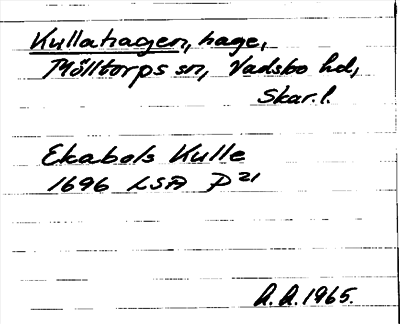 Kullahagen, hage,
Mölltorps sn, Vadsbo hd,
Skar. l.
Ekabols Kulle
1696 LSA P21
A. A. 1965.